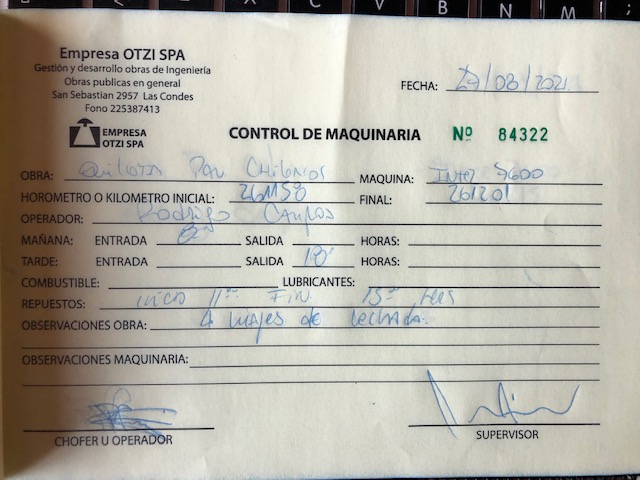 Empresa OTZI SPA
Gestión y desarrollo obras de Ingeniería
Obras publicas en general
San Sebastian 2957 Las Condes
Fono 225387413
FECHA: 27/08/2021
EMPRESA
OTZI SPA
CONTROL DE MAQUINARIA Nº 84322
OBRA: MAQUINA: 9600
HOROMETRO O KILOMETRO INICIAL: FINAL: 261201
OPERADOR: Rodrigo Campos
MAÑANA: ENTRADA SALIDA HORAS:
TARDE: ENTRADA SALIDA HORAS:
COMBUSTIBLE: LUBRICANTES:
REPUESTOS: inico 11 Fin 15
OBSERVACIONES OBRA: 4 viajes de lechada.
OBSERVACIONES MAQUINARIA:
CHOFER U OPERADOR
SUPERVISOR